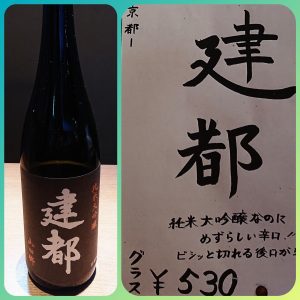 純米大吟醸
建都
京都ー
建都
純米大吟醸なのに
めずらしい辛口!!
ピシッと切れる後口が
グラス ¥530